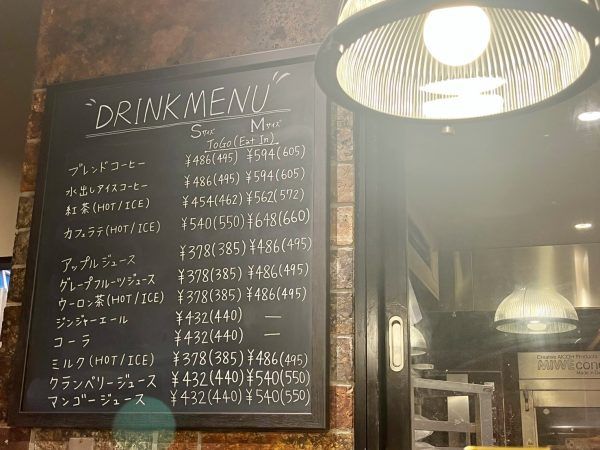 "DRINK MENU"
Sサイズ Mサイズ
ToGo (Eat In)
ブレンドコーヒー ¥486(495) ¥594(605)
水出しアイスコーヒー ¥486(495) ¥594(605)
紅茶(HOT/ICE) ¥454(462) ¥562(572)
カフェラテ(HOT/ICE) ¥540(550) ¥648(660)
アップルジュース ¥378(385) ¥486(495)
グレープフルーツジュース ¥378(385) ¥486(495)
ウーロン茶(HOT/ICE) ¥378(385) ¥486(495)
ジンジャーエール ¥432(440) —
コーラ ¥432(440) —
ミルク(HOT/ICE) ¥378(385) ¥486(495)
クランベリージュース ¥432(440) ¥540(550)
マンゴージュース ¥432(440) ¥540(550)
Creative AICOH Products
MIWE con